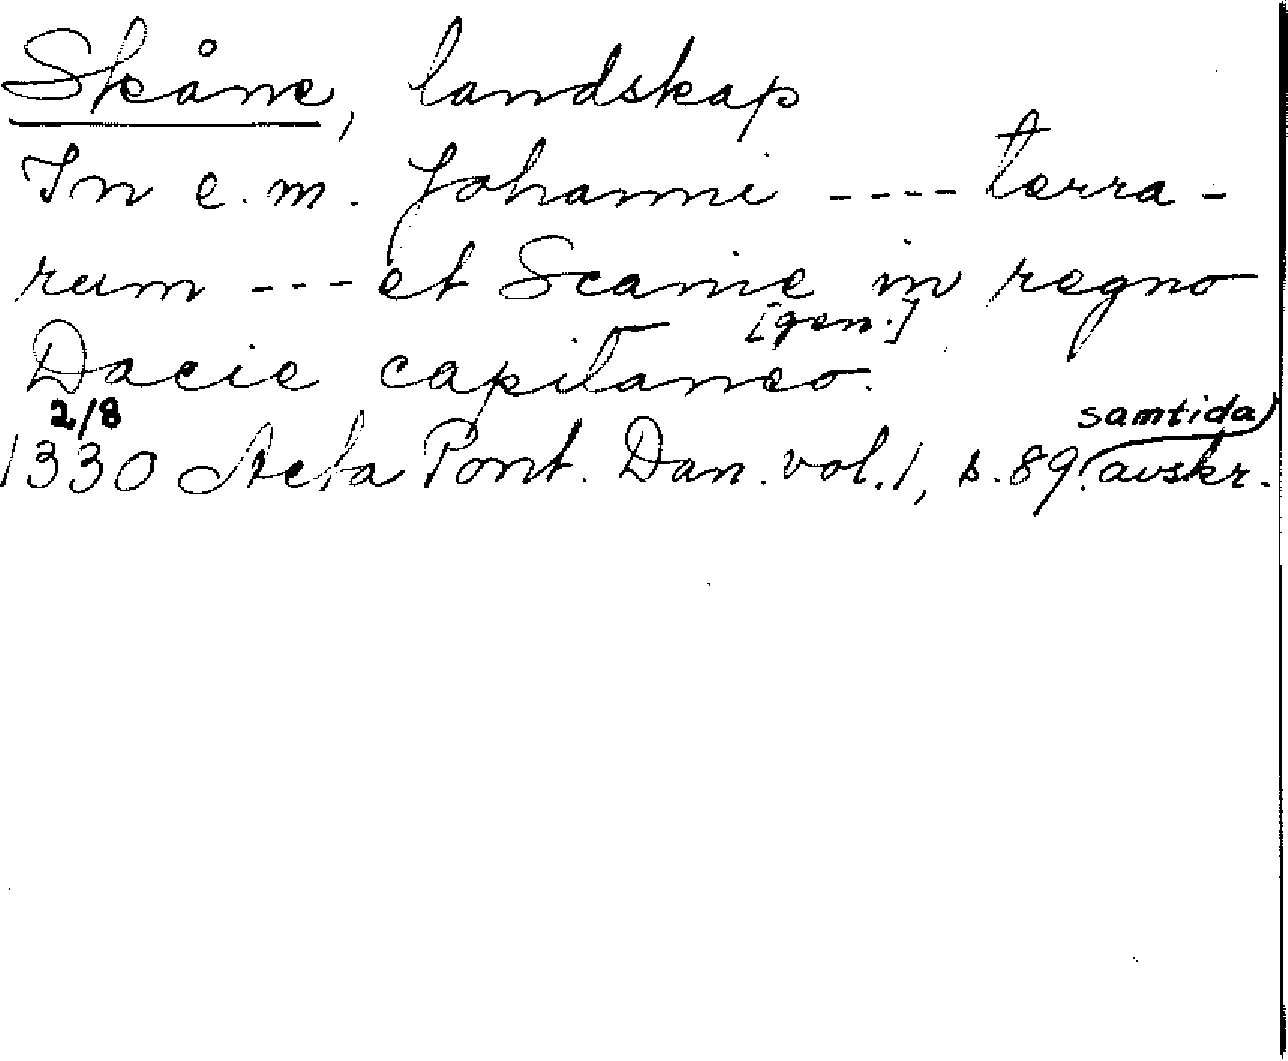 Skåne, landskap
In e. m. Johanni ---- terra-
rum --- et Scanie in regno
[gen.]
Dacie capitaneo.
2/8 samtida
1330 Acta Pont. Dan. vol. 1, s. 89. avskr.